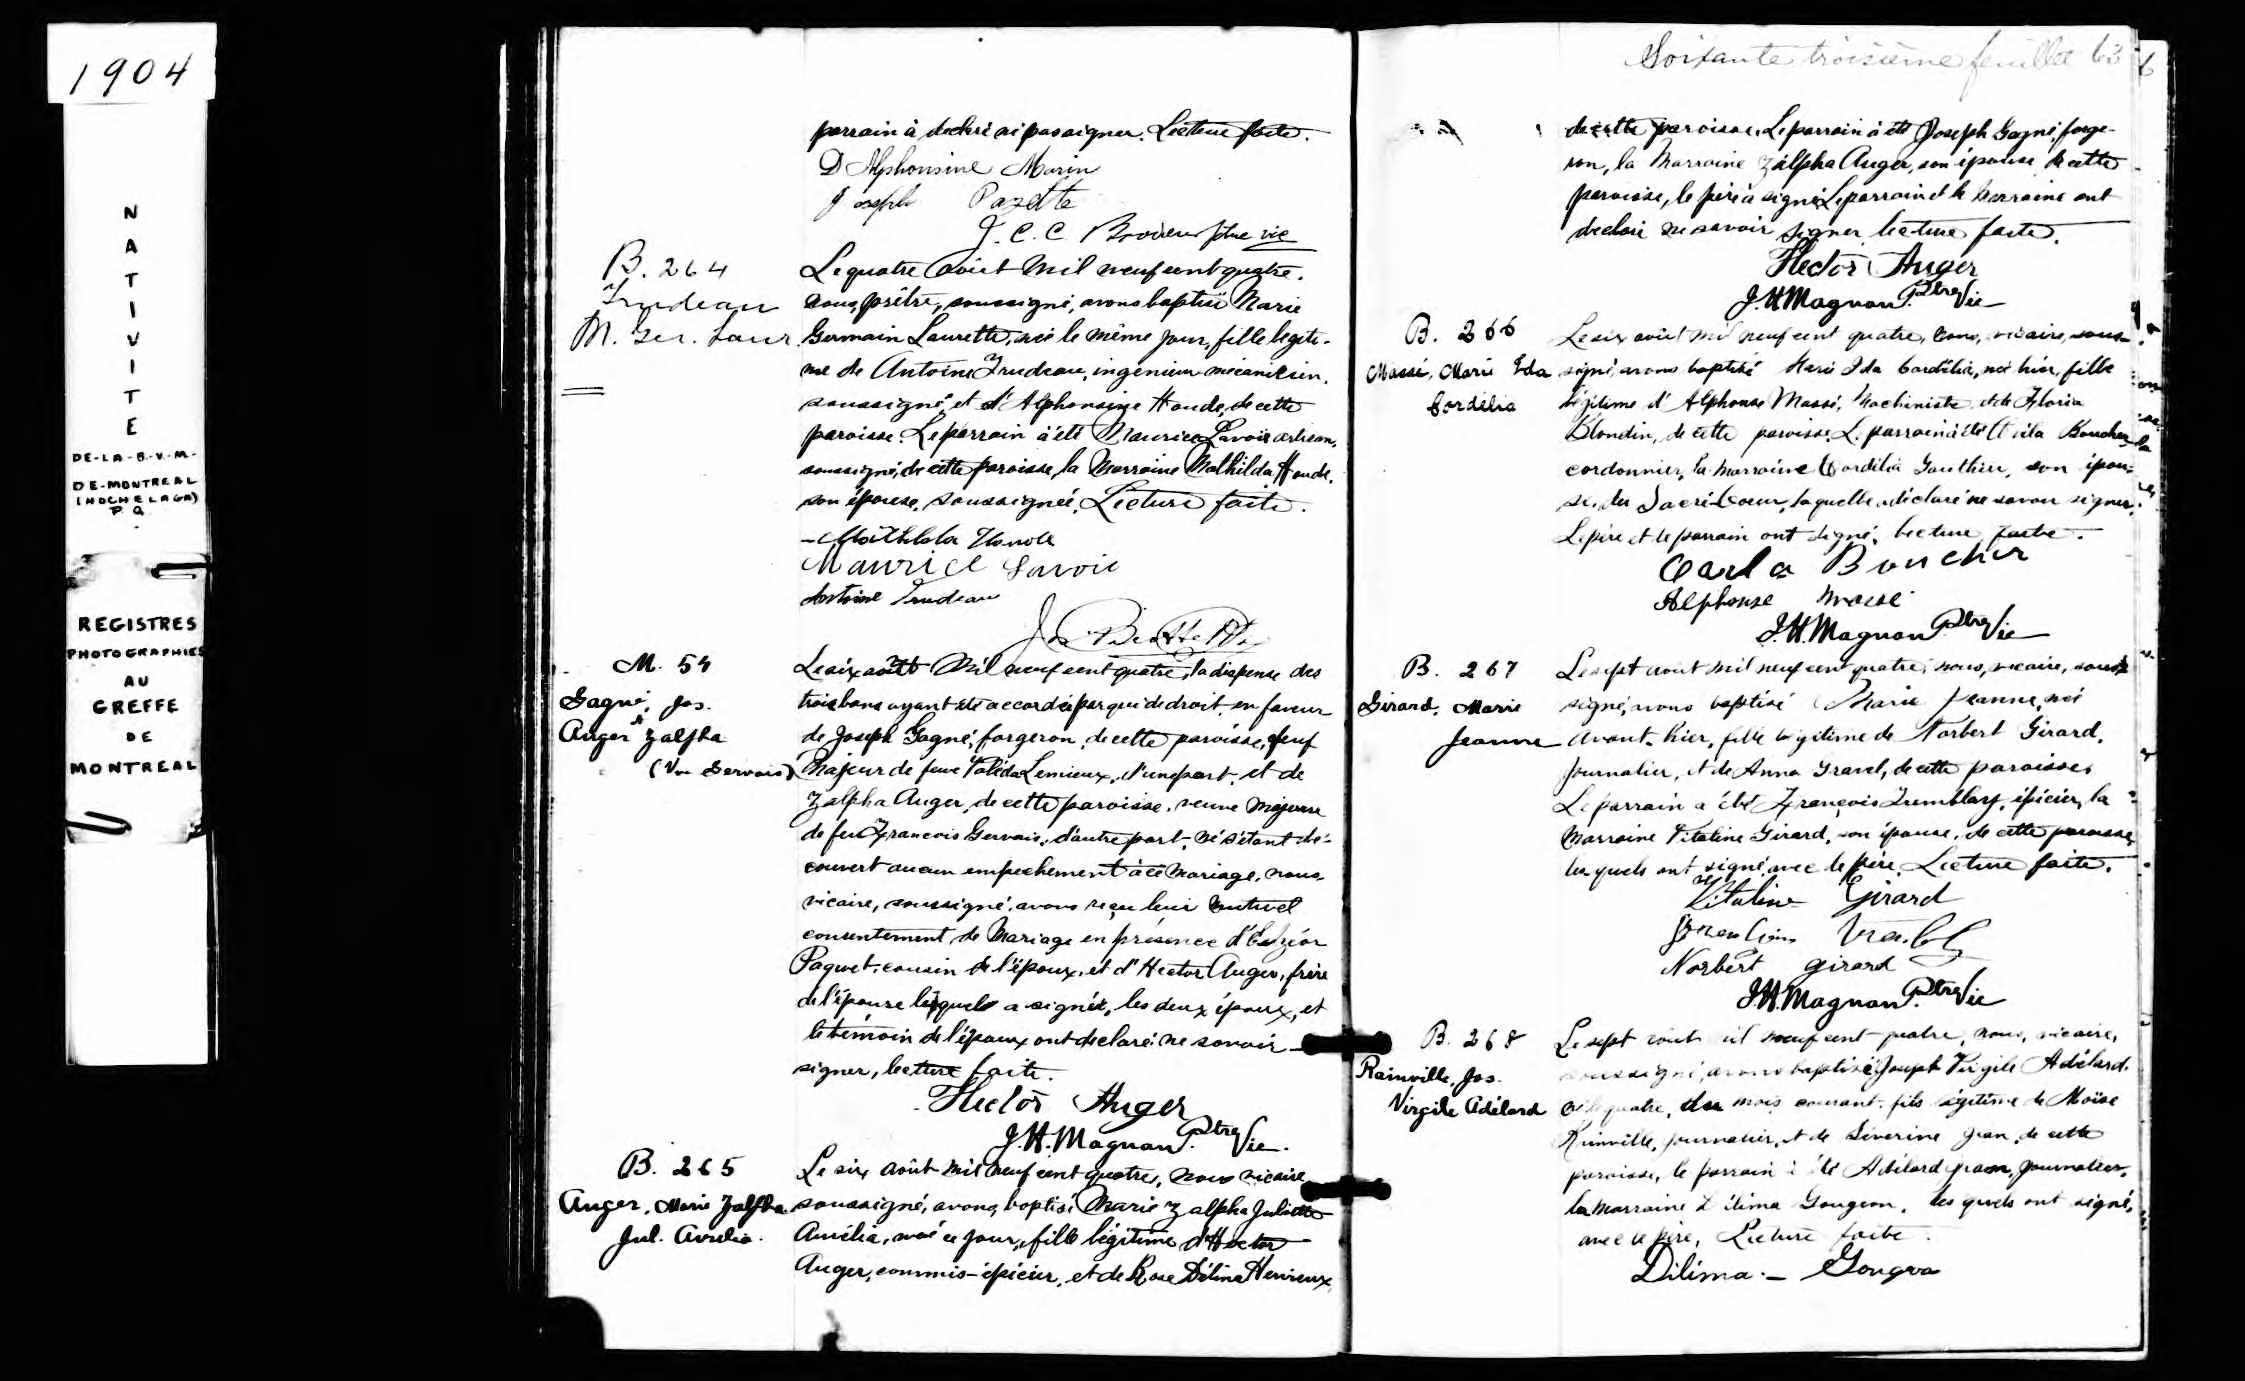 1904
NATIVITE
DE-LA-B-V-M-
DE-MONTREAL
(HOCHELAGA)
P.Q.
REGISTRES
PHOTOGRAPHIES
AU
GREFFE
DE
MONTREAL
parrain à declaré ne pas signer. Lecture faite.
D Alphonsine Marin
Joseph Pazette
J. C. C. Brodeur ptre vic
B. 264
Trudeau
M. Ger. Laur.
Le quatre août mil neuf cent quatre.
nous, prêtre, soussigné, avons baptisé Marie
Germain Laurette, née le même jour, fille légiti-
me de Antoine Trudeau, ingénieur mécanicien,
soussigné, et d'Alphonsine Houde, de cette
paroisse. Le parrain à été Maurice Lavoie artisan,
soussigné, de cette paroisse, la Marraine Mathilda Houde,
son épouse, soussignée. Lecture faite.
Mathilda Houde
Maurice Lavoie
Antoine Trudeau
M. 54
Gagné, Jos.
&
Auger Zalpha
(Vve Gervais)
Le six août Mil neuf cent quatre, la dispense des
trois bans ayant été accordée par qui de droit en faveur
de Joseph Gagné, forgeron, de cette paroisse, veuf
Majeur de feue Lemieux, d'une part, et de
Zalpha Auger, de cette paroisse, veuve majeure
de feu Francois Gervais, d'autre part, ne s'étant dé-
couvert aucun empechement à ce Mariage, nous,
vicaire, soussigné, avons reçu leur mutuel
consentement de Mariage en présence d'Elzéar
Paquet, cousin de l'époux, et d'Hector Auger, frère
de l'épouse lequel a signé, les deux époux, et
le témoin de l'époux ont declaré ne savoir
signer, lecture faite.
Hector Auger
J. H. Magnan Ptre Vic.
B. 265
Auger, Marie Zalpha
Jul. Aurelia.
Le six août mil neuf cent quatre, nous vicaire
soussigné, avons baptisé Marie Zalpha Juliette
Aurélia, née ce jour, fille légitime d'Hector
Auger, commis-épicier, et de Rose Délina Hervieux,
Soixante troisième feuillet 63
de cette paroisse. Le parrain à été Joseph Gagné, forge-
ron, la Marraine Zalpha Auger, son épouse de cette
paroisse, le père a signé. Le parrain et la Marraine ont
declaré ne savoir signer. Lecture faite.
Hector Auger
J. H. Magnan Ptre Vic
B. 266
Massé, Marie Ida
Cordélia
Le six août mil neuf cent quatre, nous, vicaire, sous-
signé, avons baptisé Marie Ida Cordélia, née hier, fille
légitime d'Alphonse Massé, Machiniste, et de Floria
Blondin, de cette paroisse. Le parrain à été Boucher
cordonnier, la marraine Cordélia Gauthier, son épou-
se, du Sacré-Coeur, laquelle a déclaré ne savoir signer.
Le père et le parrain ont signé. Lecture faite.
Boucher
Alphonse Massé
J. H. Magnan Ptre Vic
B. 267
Girard, Marie
Jeanne
Le sept août mil neuf cent quatre, nous, vicaire, sous-
signé, avons baptisé Marie Jeanne, née
avant-hier, fille légitime de Norbert Girard,
Journalier, et de Anna Gravel, de cette paroisse.
Le parrain a été François Tremblay, épicier, la
Marraine Vitaline Girard, son épouse, de cette paroisse,
lesquels ont signé avec le père. Lecture faite.
Vitaline Girard
Norbert Girard
J. H. Magnan Ptre Vic
B. 268
Rainville, Jos.
Virgile Adélard
Le sept août mil neuf cent quatre, nous, vicaire,
soussigné, avons baptisé Joseph Virgile Adélard,
né le quatre, du mois courant, fils légitime de Moïse
Rainville, journalier, et de Séverine Jean, de cette
paroisse, le parrain à été Adélard Jean, journalier,
la marraine Délima Gougeon, lesquels ont signé,
avec le père. Lecture faite.
Dilima Gougeon